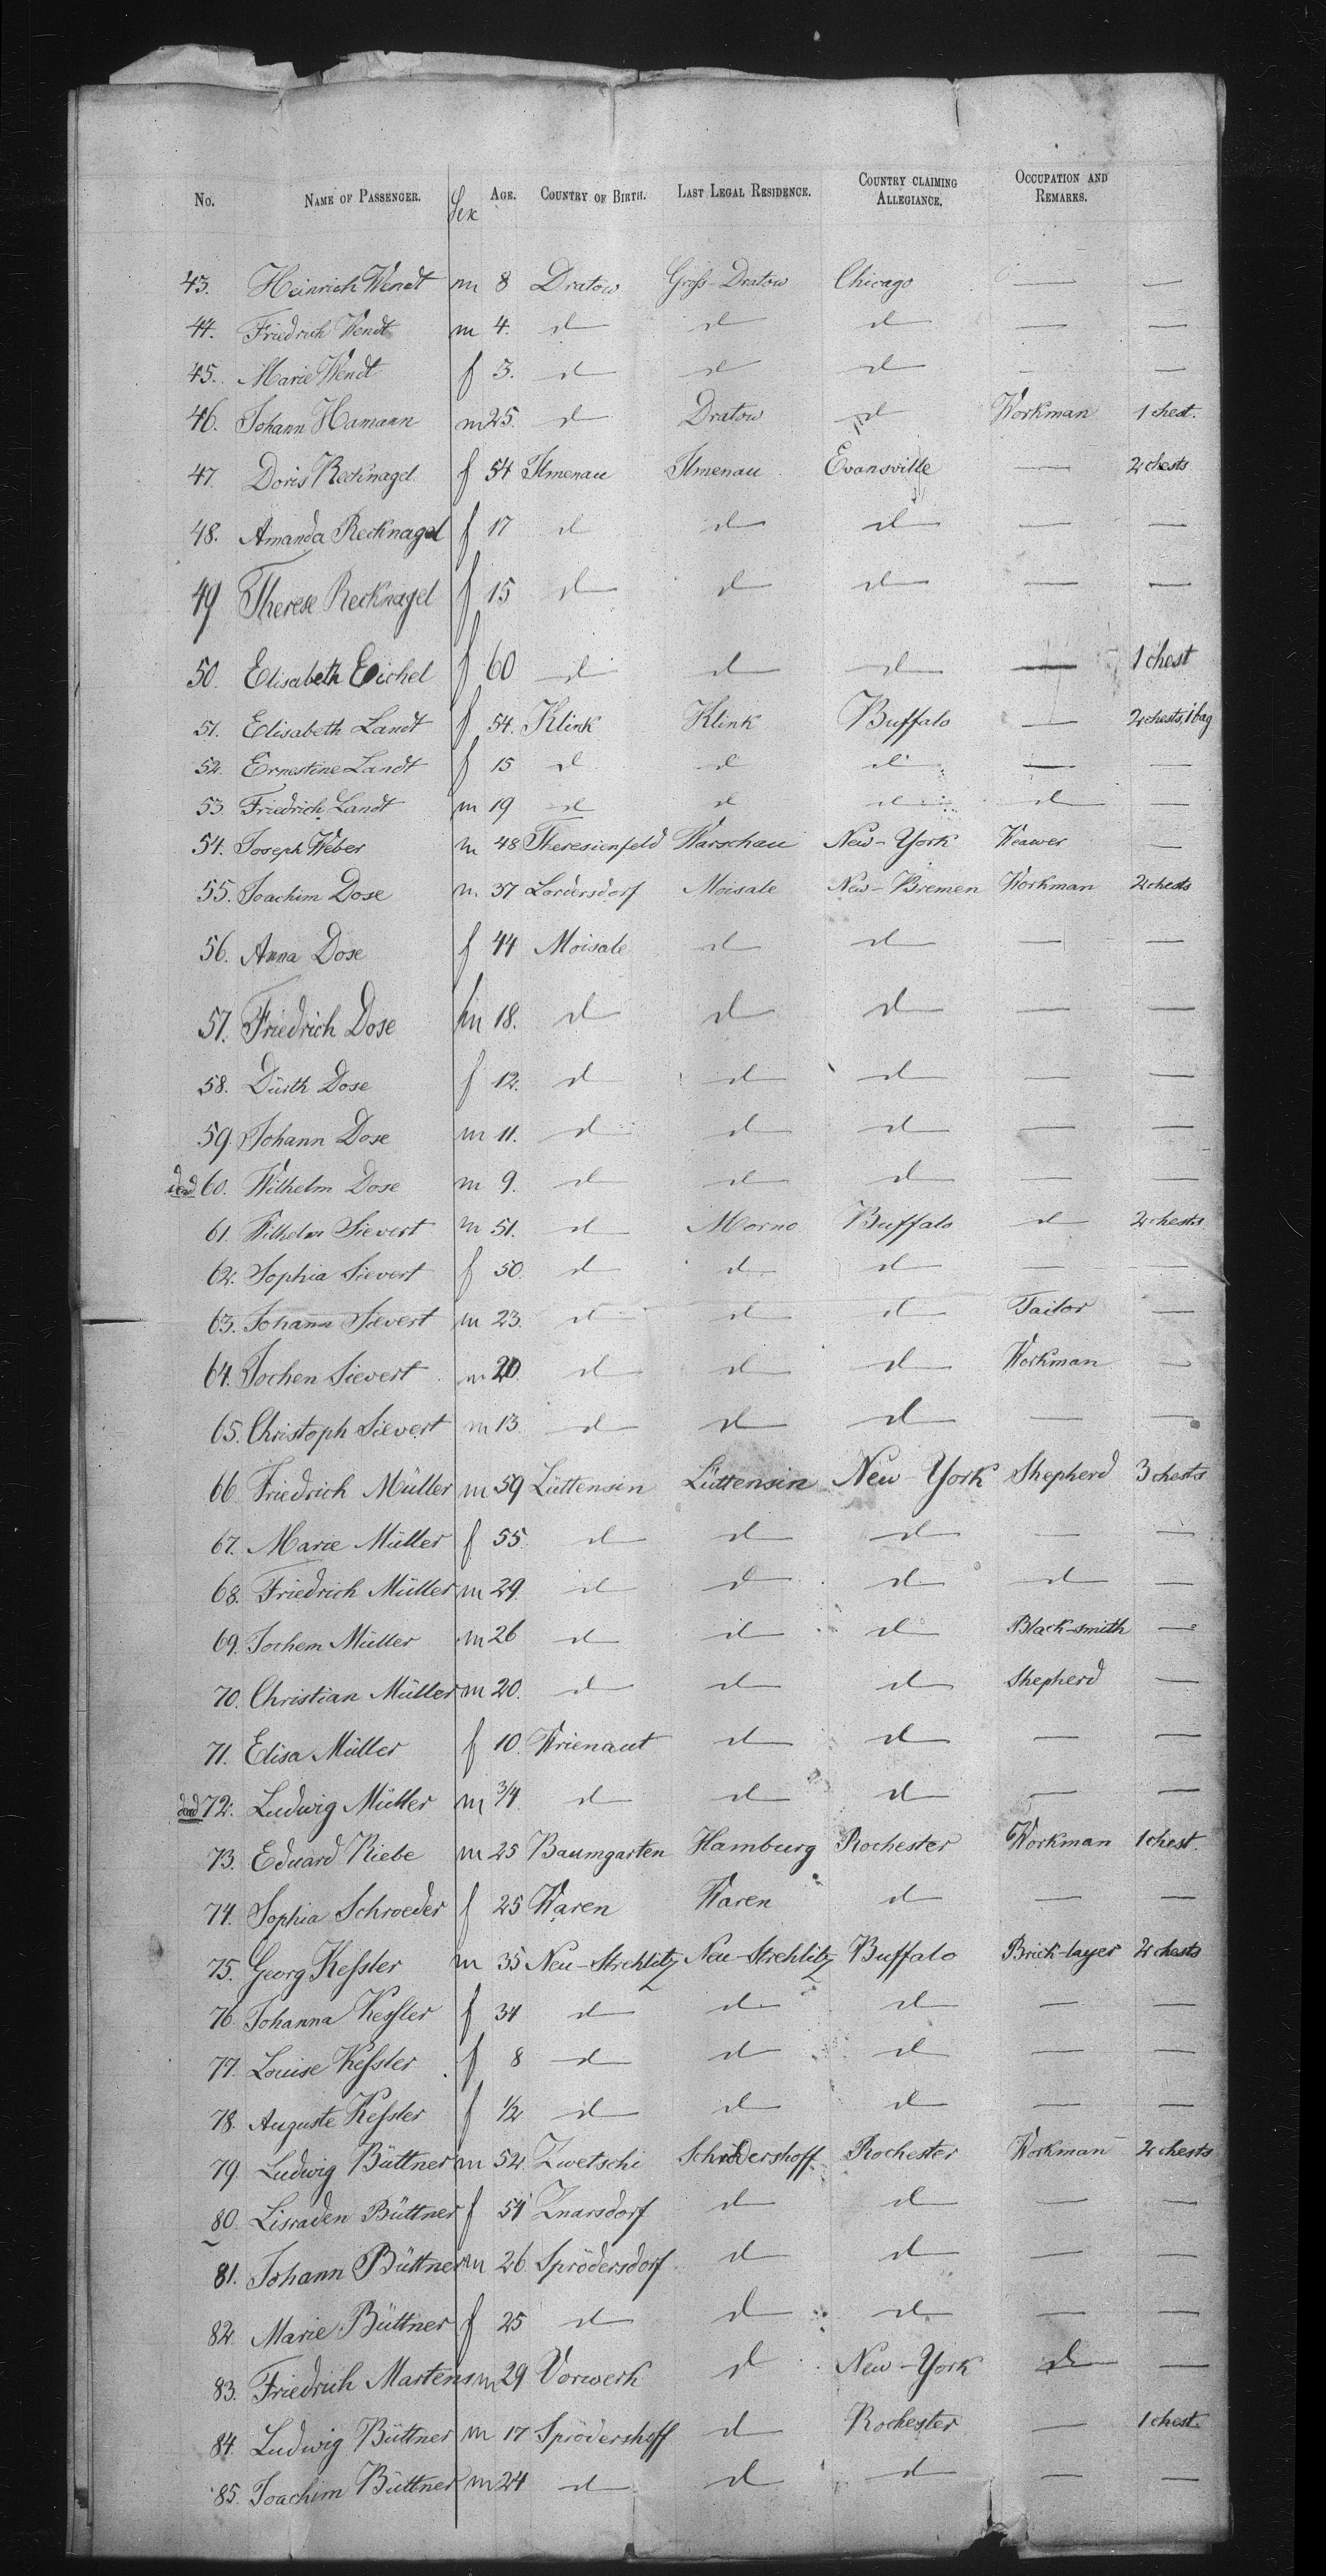 No. NAME OF PASSENGER. Sex AGE. COUNTRY OF BIRTH. LAST LEGAL RESIDENCE. COUNTRY CLAIMING ALLEGIANCE. OCCUPATION AND REMARKS.
43. Heinrich Wendt m 8 Dratow Groß-Dratow Chicago — —
44. Friedrich Wendt m 4. d d d — —
45. Marie Wendt f 3. d d d — —
46. Johann Hamann m 25. d Dratow d Workman 1 chest.
47. Doris Recknagel f 54 Ilmenau Ilmenau Evansville — 2 chests
48. Amanda Recknagel f 17 d d d — —
49 Therese Recknagel f 15 d d d — —
50. Elisabeth Eichel f 60 d d d — 1 chest
51. Elisabeth Landt f 54. Klink Klink Buffalo — 2 chests, 1 bag
52. Ernestine Landt f 15 d d d — —
53 Friedrich Landt m 19 d d d d —
54. Joseph Weber m 48 Theresienfeld Warschau New-York Weawer —
55. Joachim Dose m. 37 Lordersdorf Moisale New-Bremen Workman 2 chests
56. Anna Dose f 44 Moisale d d — —
57. Friedrich Dose m 18. d d d — —
58. Dürth Dose f 12. d d d — —
59. Johann Dose m 11. d d d — —
dead 60. Wilhelm Dose m 9. d d d — —
61. Wilhelm Sievert m 51. d Morno Buffalo d 2 chests
62. Sophia Sievert f 50. d d d — —
63. Johann Sievert m 23. d d d Tailor —
64. Jochen Sievert m 20. d d d Workman —
65. Christoph Sievert m 13. d d d — —
66 Friedrich Müller m 59 Lüttensin Lüttensin New York Shepherd 3 chests
67. Marie Müller f 55. d d d — —
68. Friedrich Müller m 29. d d d d —
69. Jochem Müller m 26 d d d Black-smith —
70. Christian Müller m 20. d d d Shepherd —
71. Elisa Müller f 10. Krienaut d d — —
dead 72. Ludwig Müller m 3/4. d d d — —
73. Eduard Riebe m 25 Baumgarten Hamburg Rochester Workman 1 chest.
74. Sophia Schroeder f 25 Waren Waren d — —
75. Georg Keßler m 35 Neu-Strehlitz Neu-Strehlitz Buffalo Brick-layer 2 chests
76 Johanna Keßler f 34 d d d — —
77. Louise Keßler f 8 d d d — —
78. Auguste Keßler f 1/2 d d d — —
79. Ludwig Büttner m 52. Zwetschi Schrödershoff Rochester Workman 2 chests
80. Lisraden Büttner f 54 Znarsdorf d d — —
81. Johann Büttner m 26 Sprödersdorf d d — —
82. Marie Büttner f 25 d d d — —
83. Friedrich Martens m 29 Vorwerk d New-York d —
84. Ludwig Büttner m 17 Sprödershoff d Rochester — 1 chest.
85. Joachim Büttner m 24 d d d — —